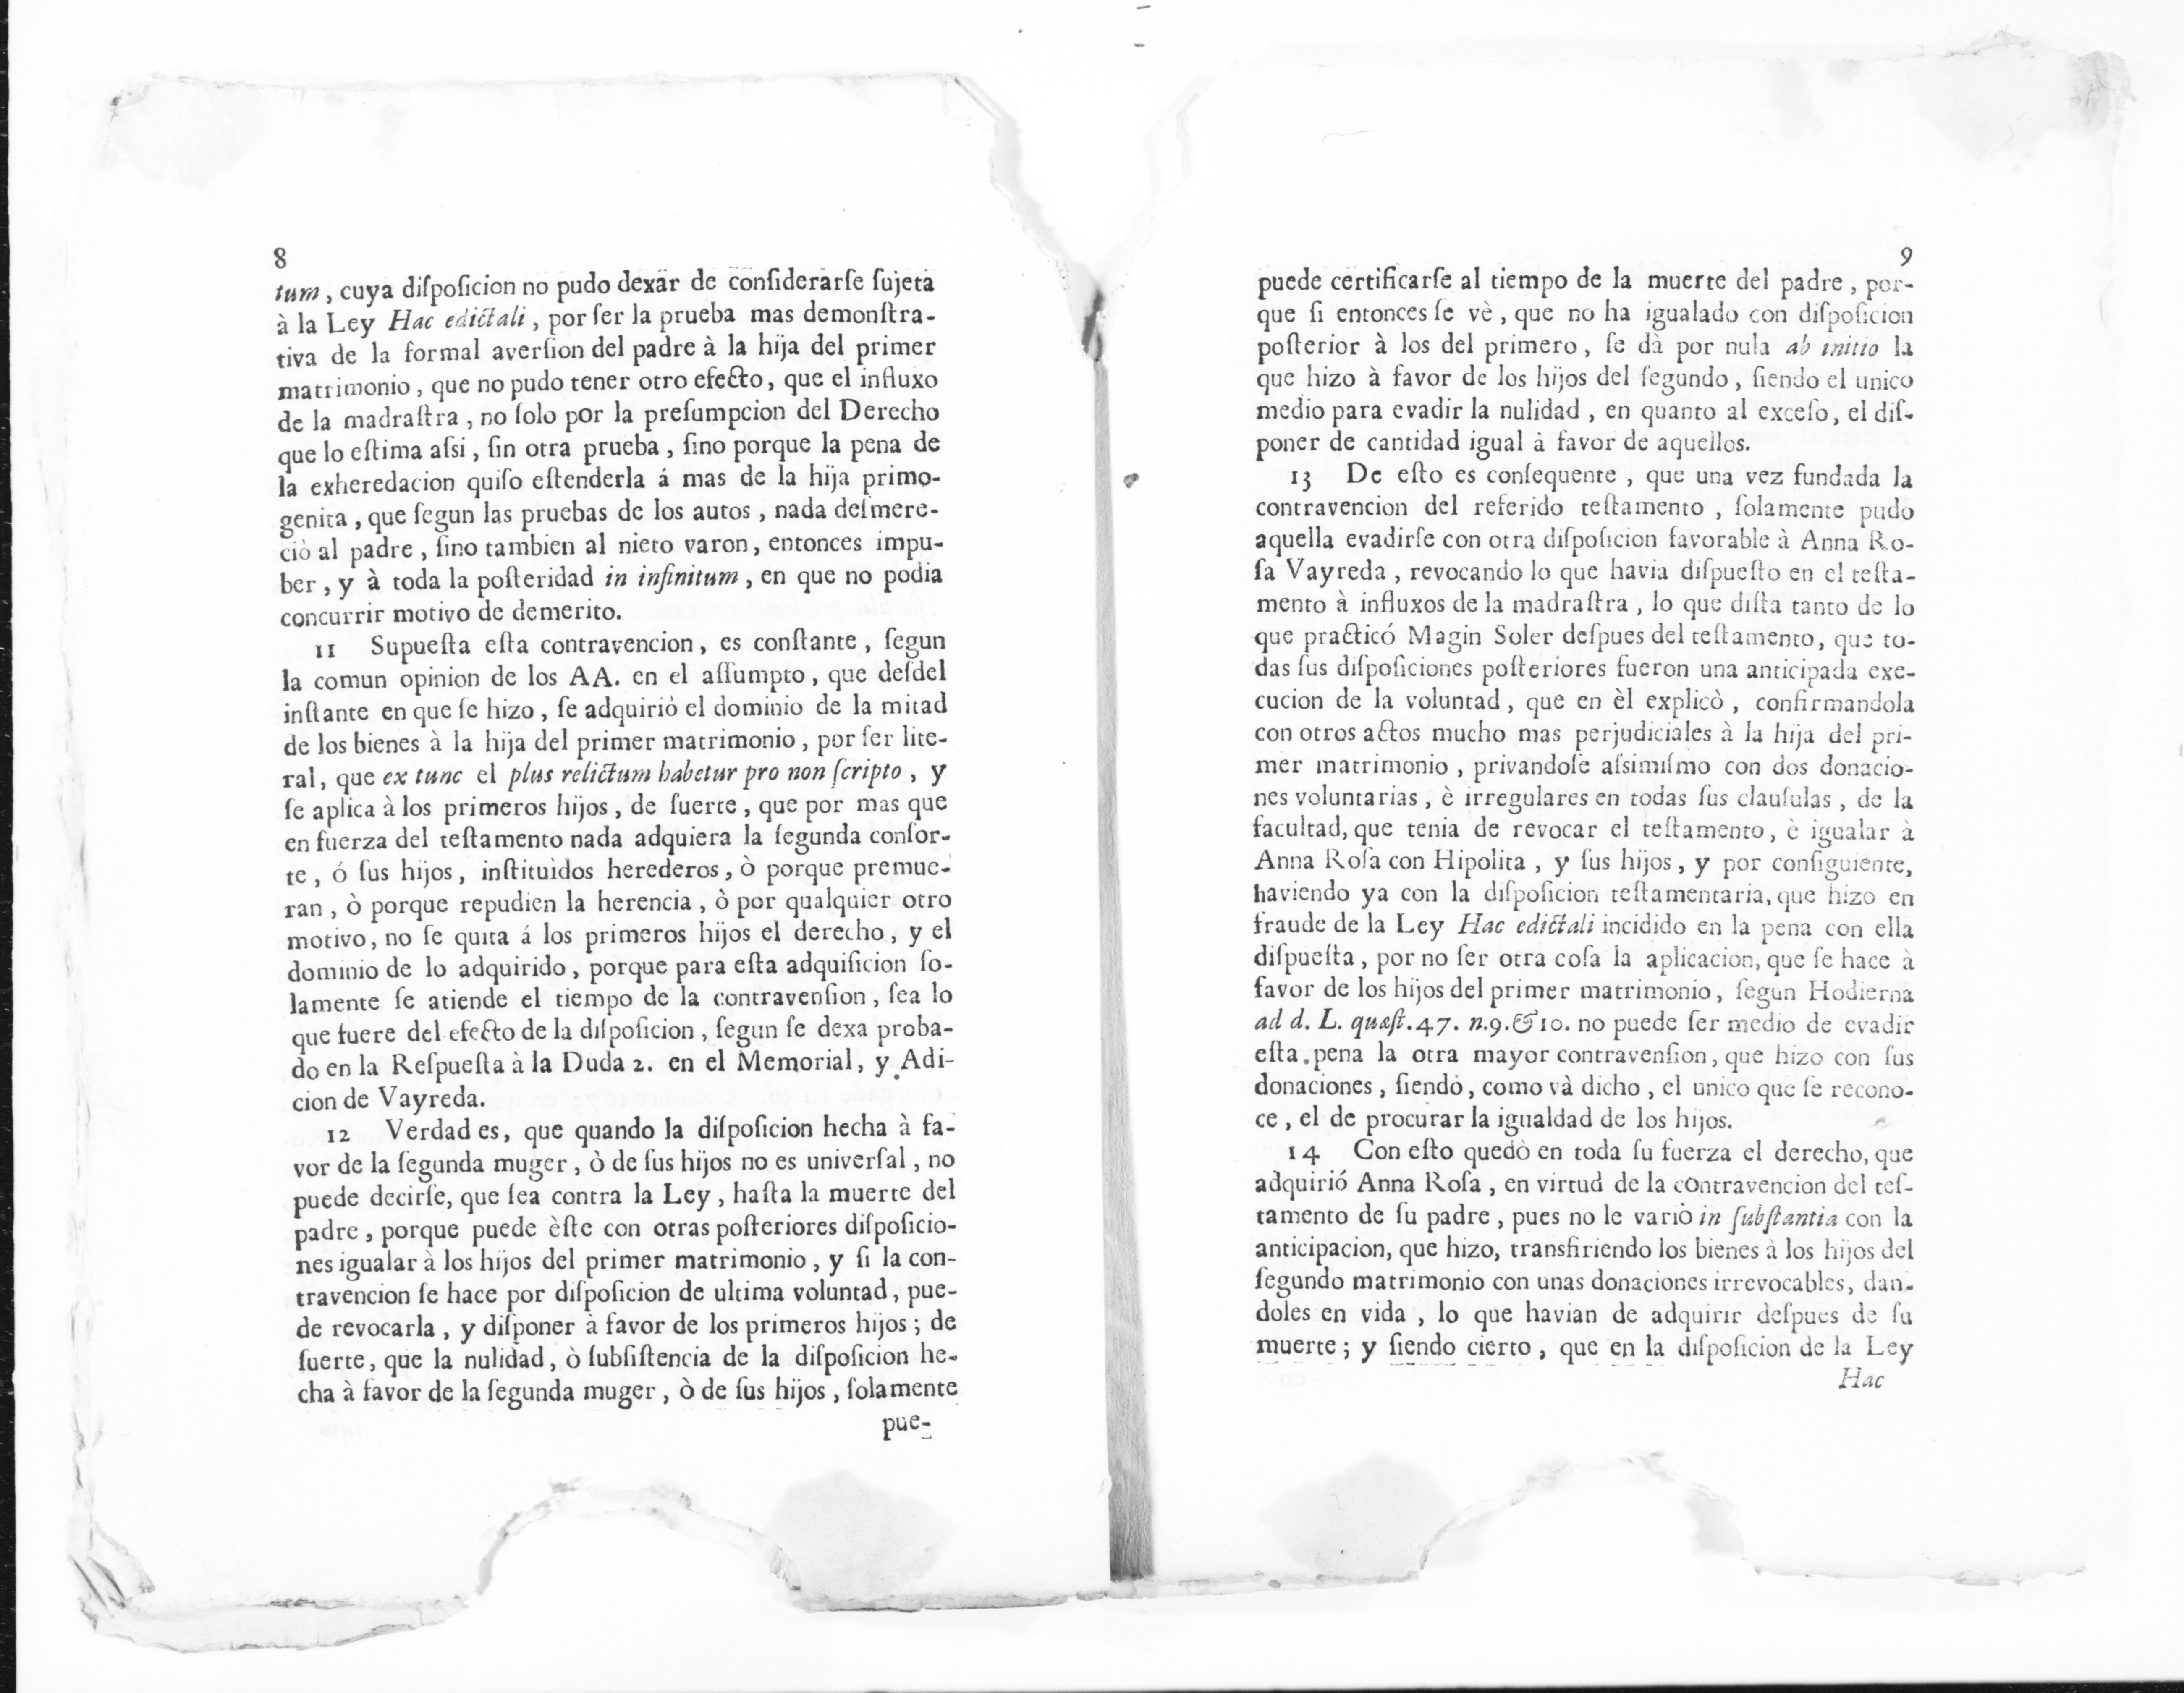 8
tum, cuya diſpoſicion no pudo dexar de conſiderarſe ſujeta
à la Ley Hac edictali, por ſer la prueba mas demonſtra-
tiva de la formal averſion del padre à la hija del primer
matrimonio, que no pudo tener otro efecto, que el influxo
de la madraſtra, no ſolo por la preſumpcion del Derecho
que lo eſtima aſsi, ſin otra prueba, ſino porque la pena de
la exheredacion quiſo eſtenderla á mas de la hija primo-
genita, que ſegun las pruebas de los autos, nada deſmere-
ciò al padre, ſino tambien al nieto varon, entonces impu-
ber, y à toda la poſteridad in infinitum, en que no podia
concurrir motivo de demerito.
11 Supueſta eſta contravencion, es conſtante, ſegun
la comun opinion de los AA. en el aſſumpto, que deſdel
inſtante en que ſe hizo, ſe adquiriò el dominio de la mitad
de los bienes à la hija del primer matrimonio, por ſer lite-
ral, que ex tunc el plus relictum habetur pro non ſcripto, y
ſe aplica à los primeros hijos, de ſuerte, que por mas que
en fuerza del teſtamento nada adquiera la ſegunda conſor-
te, ó ſus hijos, inſtituìdos herederos, ò porque premue-
ran, ò porque repudien la herencia, ò por qualquier otro
motivo, no ſe quita á los primeros hijos el derecho, y el
dominio de lo adquirido, porque para eſta adquiſicion ſo-
lamente ſe atiende el tiempo de la contravenſion, ſea lo
que fuere del efecto de la diſpoſicion, ſegun ſe dexa proba-
do en la Reſpueſta à la Duda 2. en el Memorial, y Adi-
cion de Vayreda.
12 Verdad es, que quando la diſpoſicion hecha à fa-
vor de la ſegunda muger, ò de ſus hijos no es univerſal, no
puede decirſe, que ſea contra la Ley, haſta la muerte del
padre, porque puede èſte con otras poſteriores diſpoſicio-
nes igualar à los hijos del primer matrimonio, y ſi la con-
travencion ſe hace por diſpoſicion de ultima voluntad, pue-
de revocarla, y diſponer à favor de los primeros hijos; de
ſuerte, que la nulidad, ò ſubſiſtencia de la diſpoſicion he-
cha à favor de la ſegunda muger, ò de ſus hijos, ſolamente
pue-
9
puede certificarſe al tiempo de la muerte del padre, por-
que ſi entonces ſe vè, que no ha igualado con diſpoſicion
poſterior à los del primero, ſe dà por nula ab initio la
que hizo à favor de los hijos del ſegundo, ſiendo el unico
medio para evadir la nulidad, en quanto al exceſo, el diſ-
poner de cantidad igual à favor de aquellos.
13 De eſto es conſequente, que una vez fundada la
contravencion del referido teſtamento, ſolamente pudo
aquella evadirſe con otra diſpoſicion favorable à Anna Ro-
ſa Vayreda, revocando lo que havia diſpueſto en el teſta-
mento à influxos de la madraſtra, lo que diſta tanto de lo
que practicó Magin Soler deſpues del teſtamento, que to-
das ſus diſpoſiciones poſteriores fueron una anticipada exe-
cucion de la voluntad, que en èl explicò, confirmandola
con otros actos mucho mas perjudiciales à la hija del pri-
mer matrimonio, privandoſe aſsimiſmo con dos donacio-
nes voluntarias, è irregulares en todas ſus clauſulas, de la
facultad, que tenia de revocar el teſtamento, è igualar à
Anna Roſa con Hipolita, y ſus hijos, y por conſiguiente,
haviendo ya con la diſpoſicion teſtamentaria, que hizo en
fraude de la Ley Hac edictali incidido en la pena con ella
diſpueſta, por no ſer otra coſa la aplicacion, que ſe hace à
favor de los hijos del primer matrimonio, ſegun Hodierna
ad d. L. quæſt. 47. n.9. & 10. no puede ſer medio de evadir
eſta pena la otra mayor contravenſion, que hizo con ſus
donaciones, ſiendo, como và dicho, el unico que ſe recono-
ce, el de procurar la igualdad de los hijos.
14 Con eſto quedò en toda ſu fuerza el derecho, que
adquirió Anna Roſa, en virtud de la contravencion del teſ-
tamento de ſu padre, pues no le variò in ſubſtantia con la
anticipacion, que hizo, transfiriendo los bienes à los hijos del
ſegundo matrimonio con unas donaciones irrevocables, dan-
doles en vida, lo que havian de adquirir deſpues de ſu
muerte; y ſiendo cierto, que en la diſpoſicion de la Ley
Hac